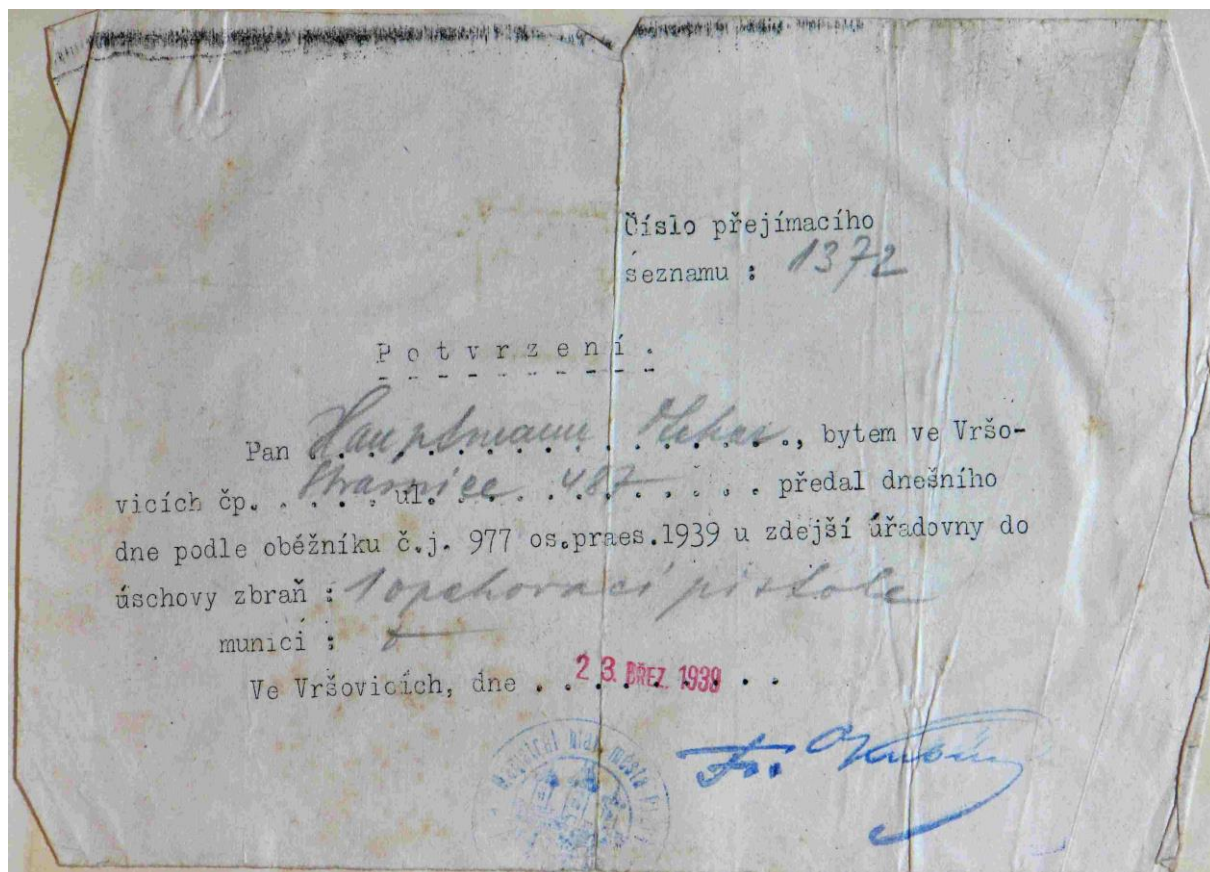 Číslo přejímacího
seznamu : 1372
Potvrzení.
Pan Hauptmann, bytem ve Vršo-
vicích čp. ul. 487 předal dnešního
dne podle oběžníku č.j. 977 os.praes.1939 u zdejší úřadovny do
úschovy zbraň : 1 opakovací pistole
munici :
Ve Vršovicích, dne 23. BŘEZ. 1939
Magistrát hlav. města